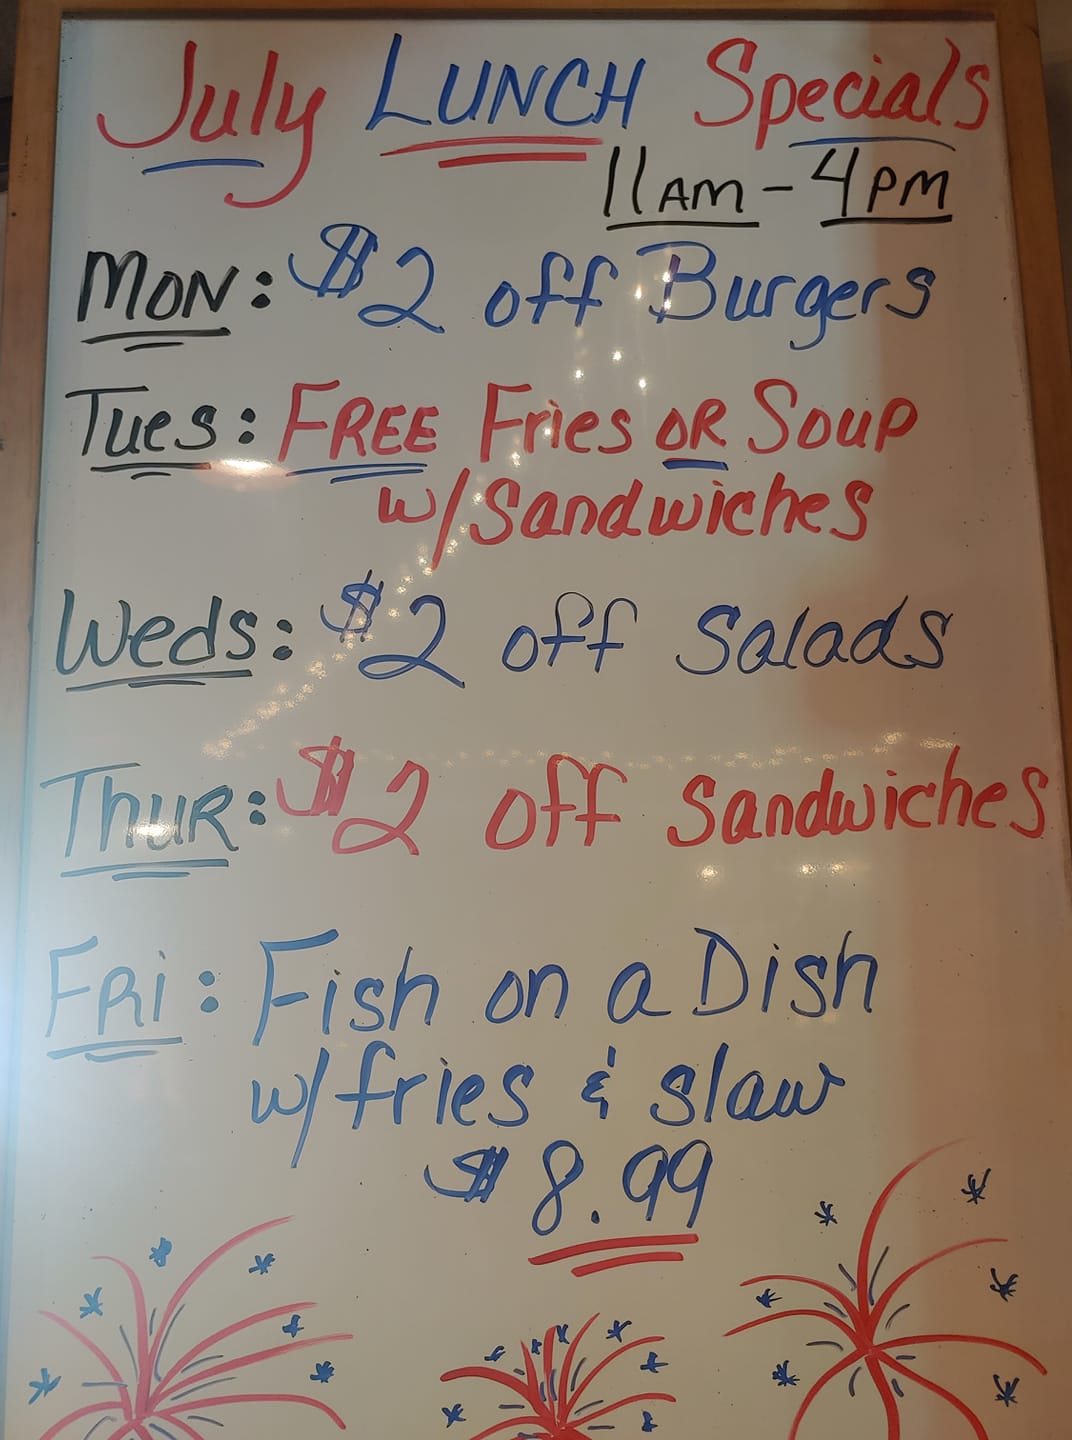 July LUNCH Specials
11AM - 4PM
MON: $2 off Burgers
TUES: FREE Fries OR Soup
w/Sandwiches
Weds: $2 off Salads
THUR: $2 off Sandwiches
FRI: Fish on a Dish
w/fries & slaw
$8.99